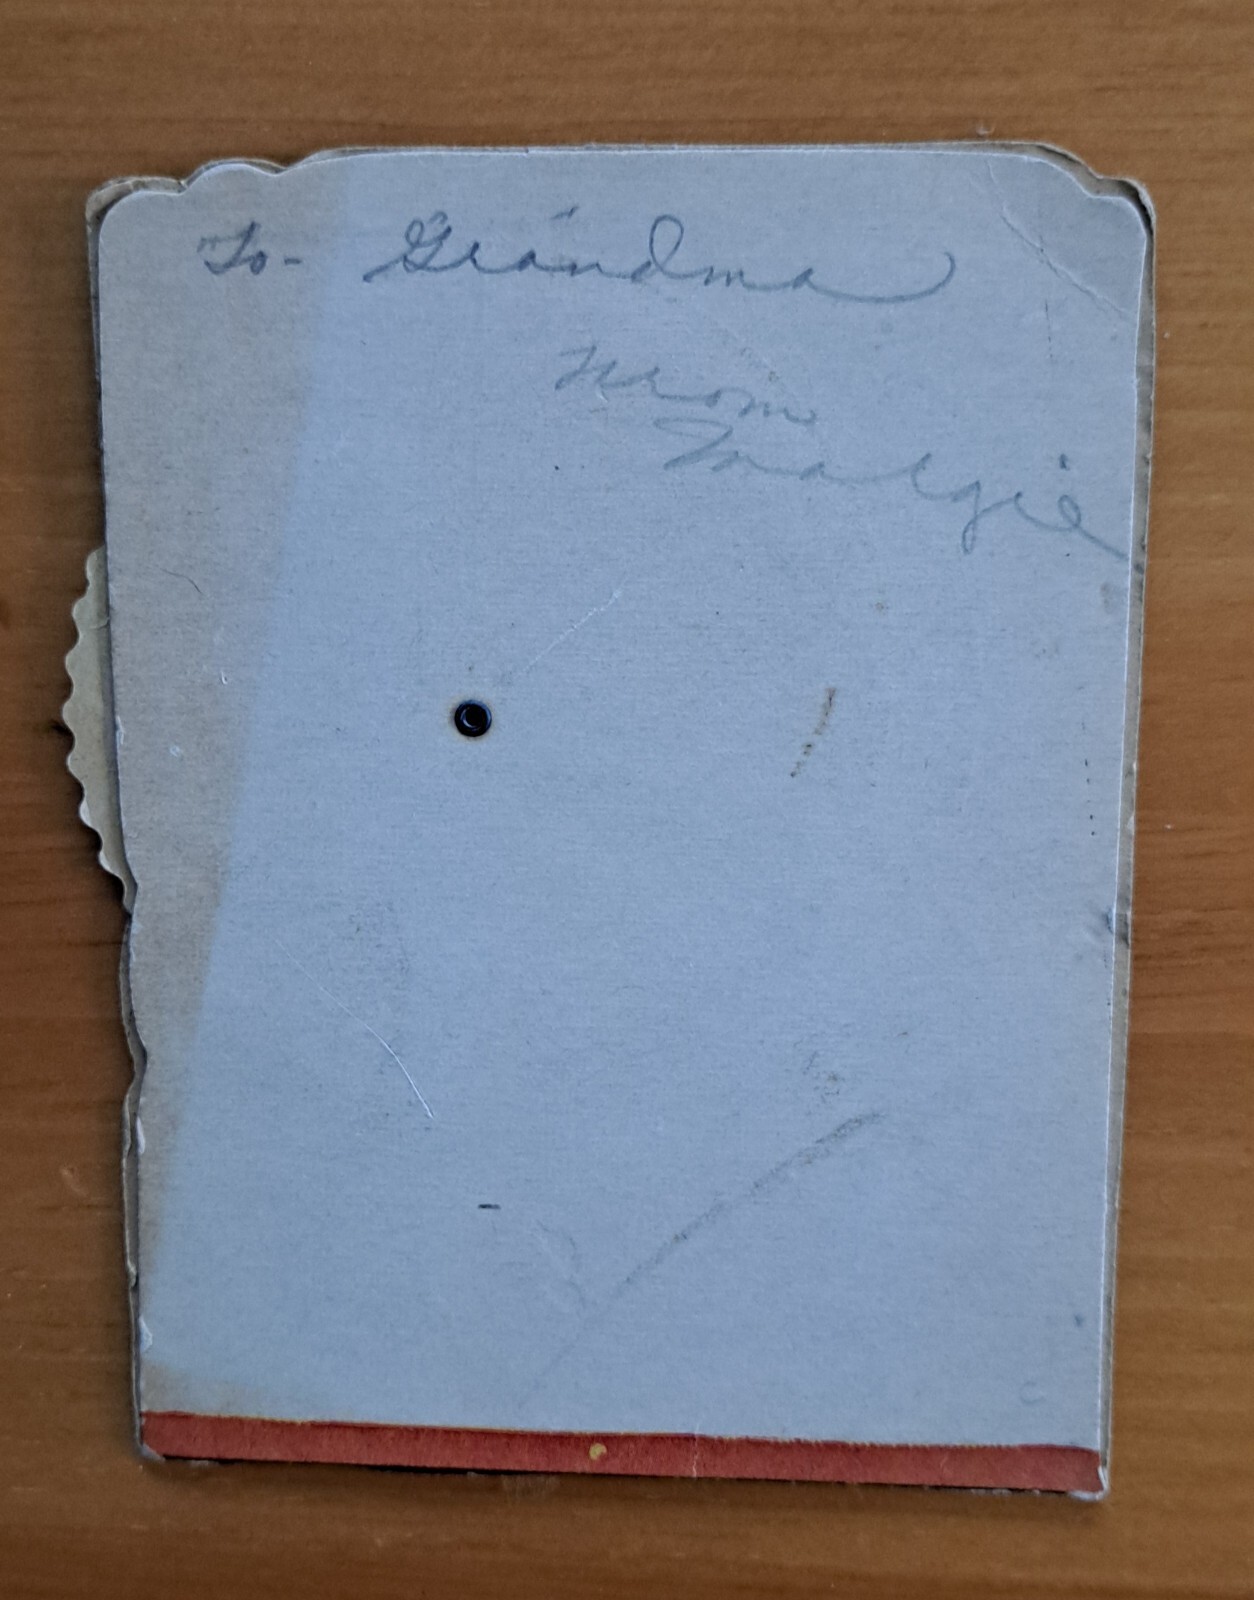 To- Grandma
From
Margie